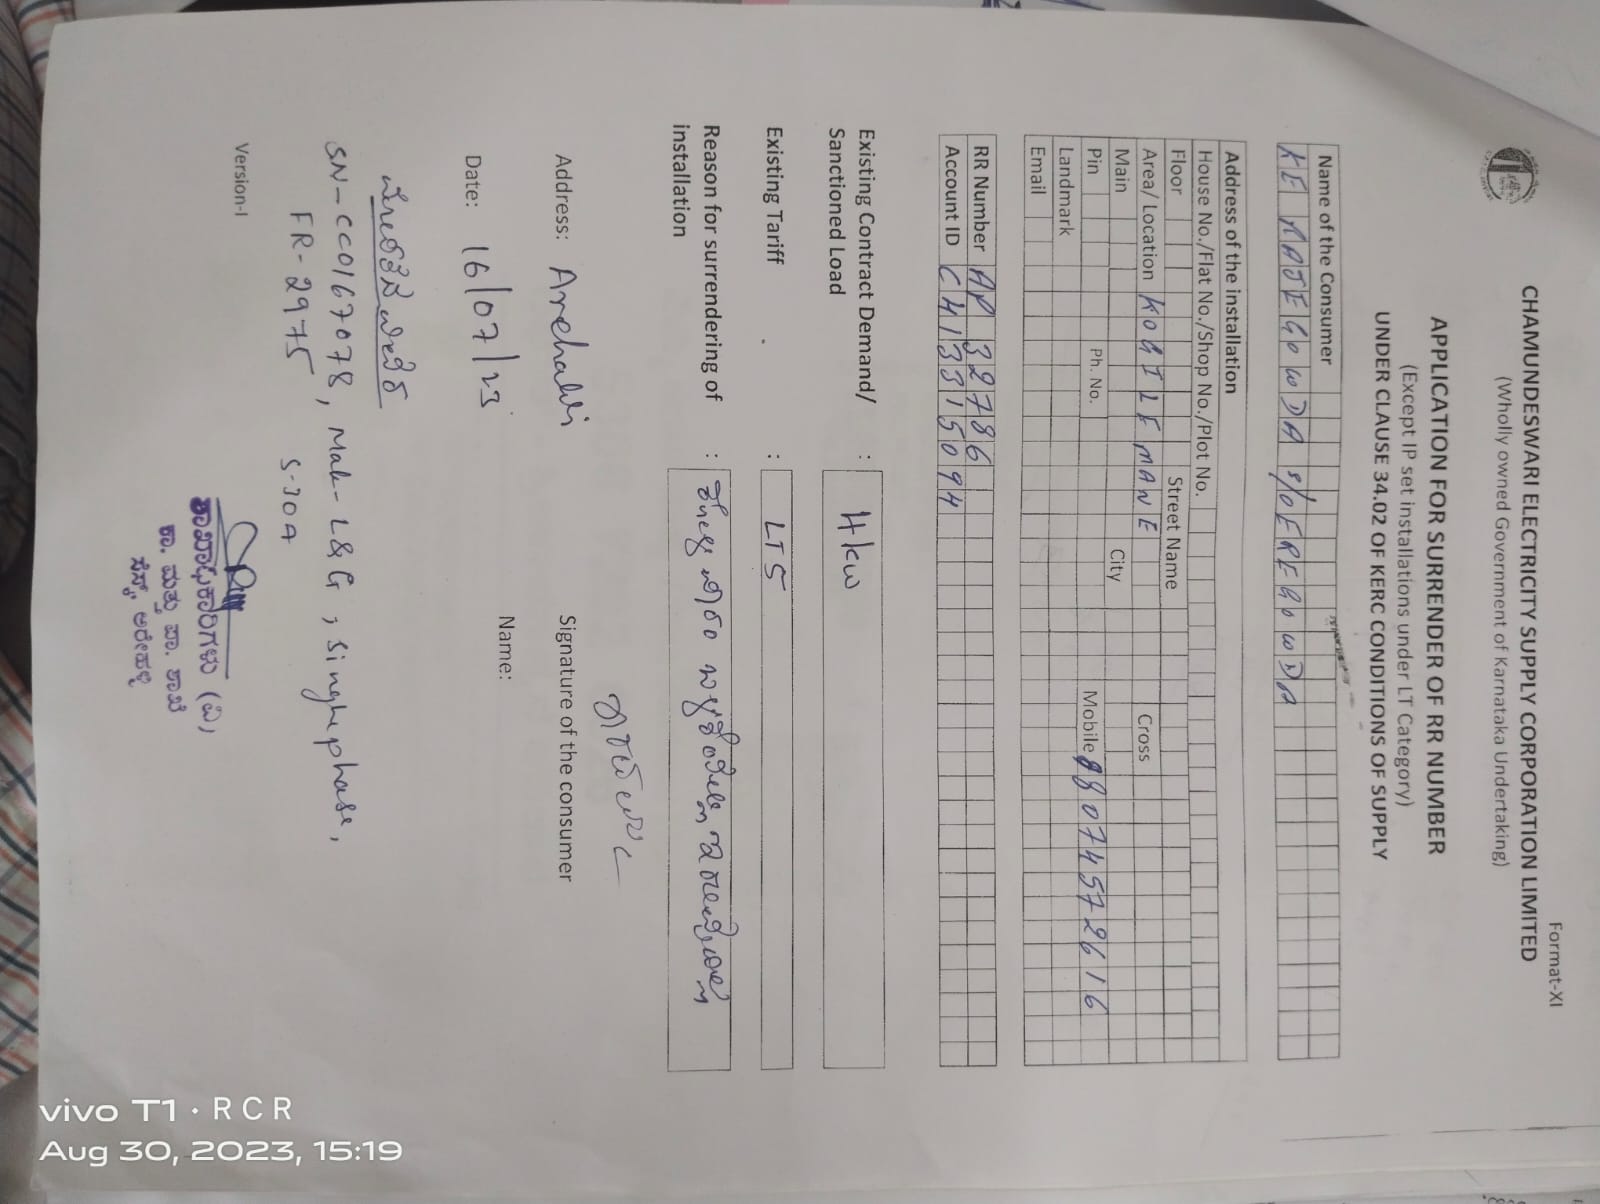 Format-XI
CHAMUNDESWARI ELECTRICITY SUPPLY CORPORATION LIMITED
(Wholly owned Government of Karnataka Undertaking)
APPLICATION FOR SURRENDER OF RR NUMBER
(Except IP set installations under LT Category)
UNDER CLAUSE 34.02 OF KERC CONDITIONS OF SUPPLY
Name of the Consumer
KE RAJEGOWDA S/O EREGOWDA
Address of the installation
House No./Flat No./Shop No./Plot No.
Floor Street Name
Area/ Location KOGILEMANE Cross
Main City
Pin Ph. No. Mobile 8807457 2616
Landmark
Email
RR Number AP 32786
Account ID C413315094
Existing Contract Demand/ : 4kw
Sanctioned Load
Existing Tariff : LT5
Reason for surrendering of :
installation
Address: Arehalli Signature of the consumer
Date: 16/07/23 Name:
SN-CC0167078, Mak- L&G ; Singhe phase,
FR-2975 5-30A
ಶಾಖಾಧಿಕಾರಿಗಳು (ವಿ)
ಕಾ. ಮತ್ತು ಪಾ. ಶಾಖೆ
ಸೆಸ್ಕ್, ಅರೇಹಳ್ಳಿ
Version-I
vivo T1 · RCR
Aug 30, 2023, 15:19